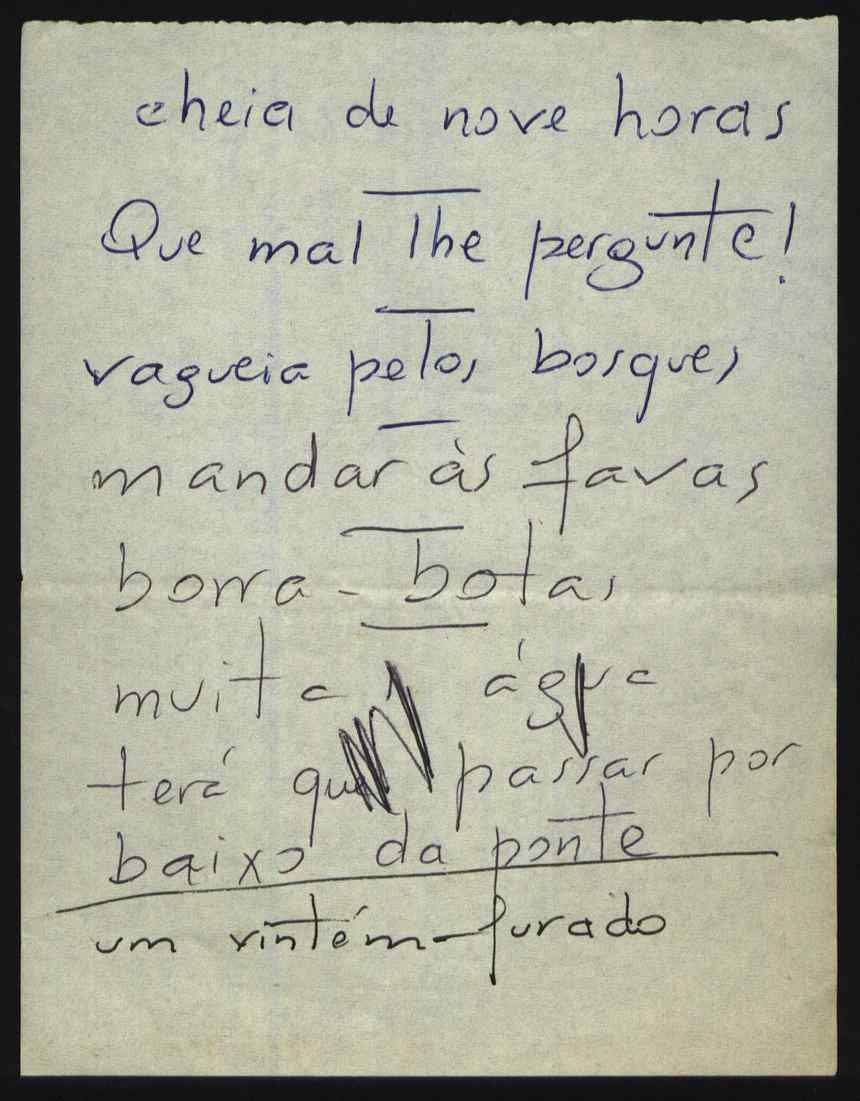 cheia de nove horas
Que mal lhe pergunte!
vagueia pelos bosques
mandar às favas
borra-botas
muita água
terá que passar por
baixo da ponte
um vintém-furado